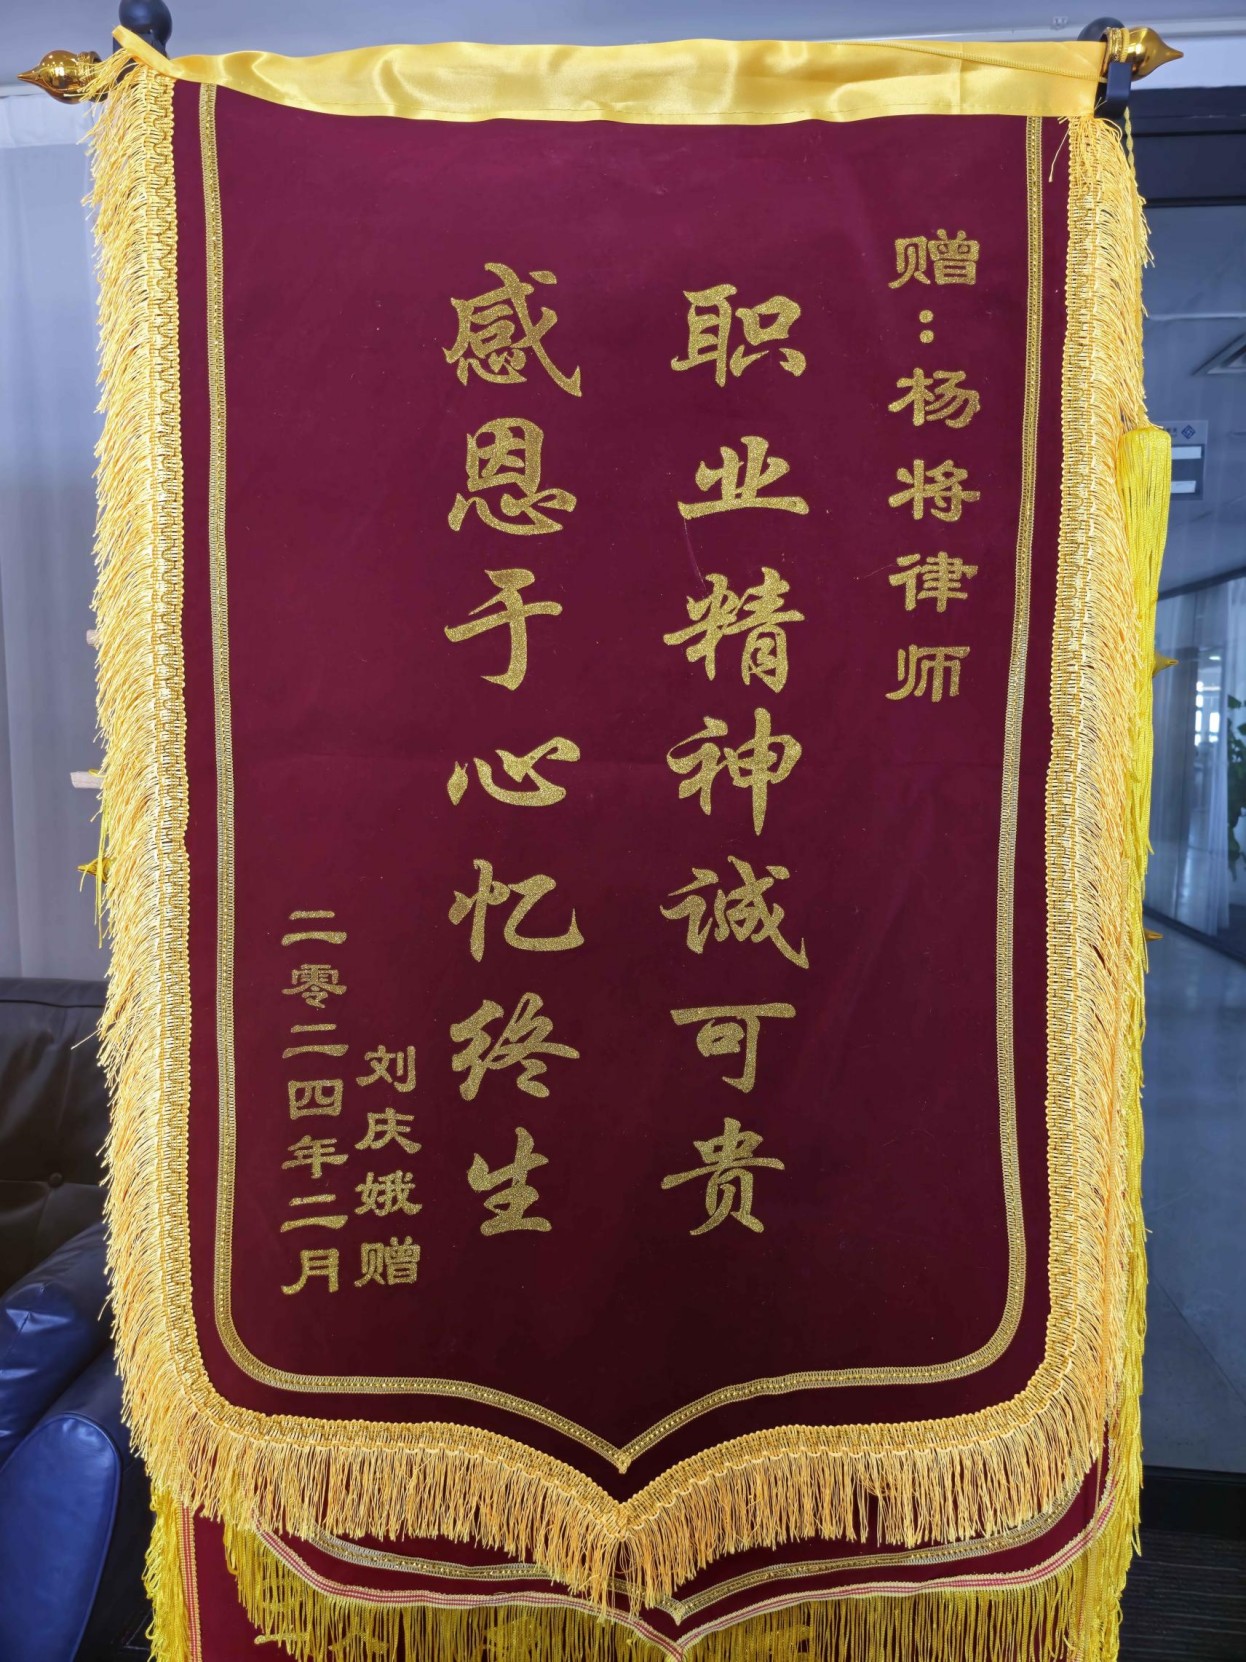 赠：杨将律师
职业精神诚可贵
感恩于心忆终生
刘庆娥赠
二零二四年二月